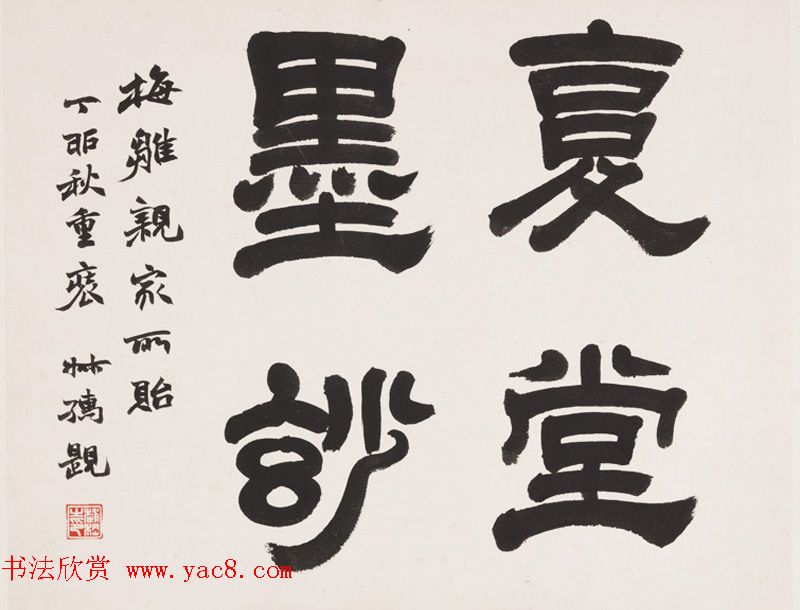 复堂
墨玅
梅雛親家所貽
丁卯秋重裝 題
书法欣赏 www.yac8.com